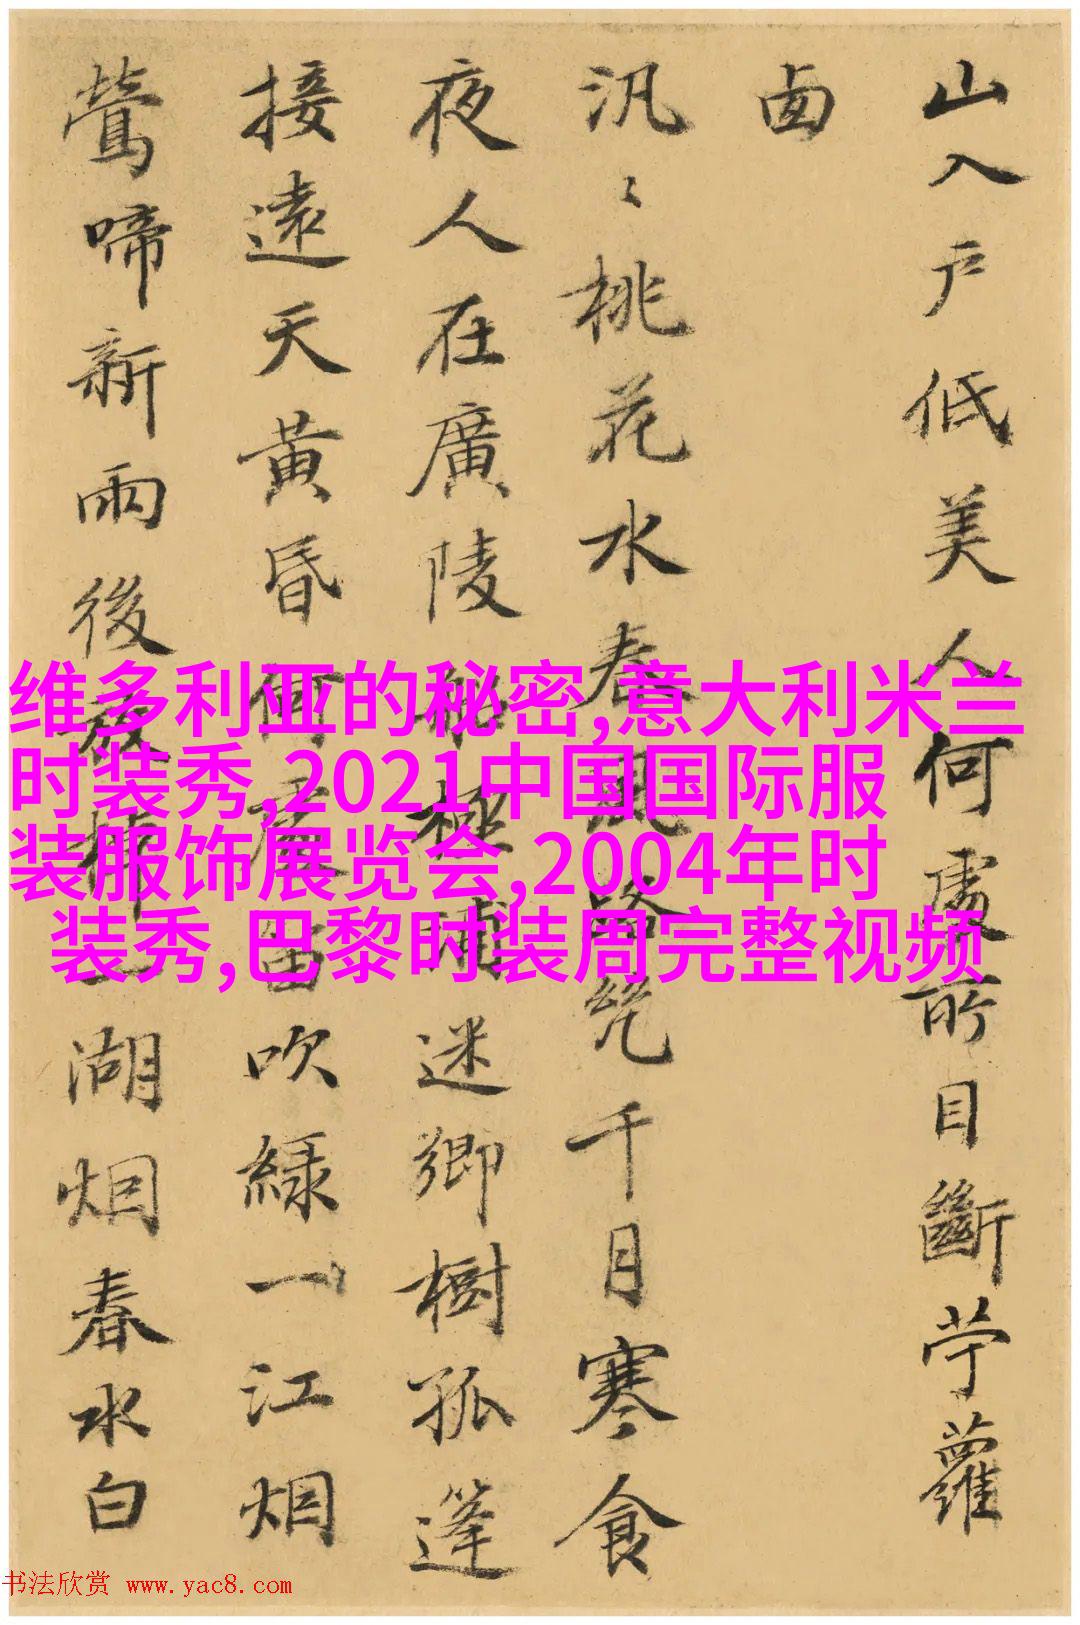 山入户低美人何處所目斷苧蘿
西
汎〻桃花水春風路千月寒食
夜人在廣陵船極浦迷鄉樹孤篷
接遠天黄昏何處笛吹緑一江烟
鶯啼新雨後湖烟春水白
维多利亚的秘密,意大利米兰
时装秀,2021中国国际服
装服饰展览会,2004年时
装秀,巴黎时装周完整视频
书法欣赏 www.yac8.com